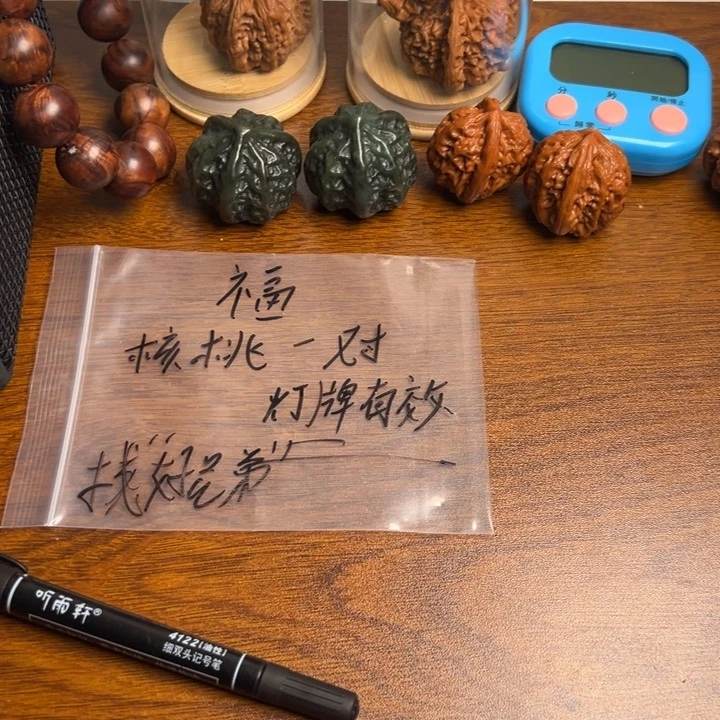 分 秒 开始/停止
清零
福
核桃一对
灯牌有效
找"好兄弟"
听雨轩®
4122(油性)
细双头记号笔